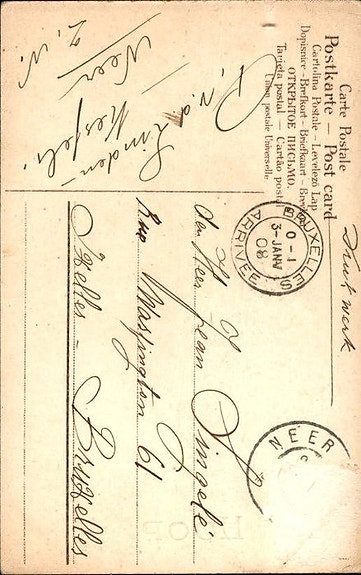 Carte Postale
Postkarte — Post card
Cartolina Postale - Levelező Lap
Dopisnice - Brefkort - Briefkaart - Brevkort
ОТКРЫТОЕ ПИСЬМО.
Tarjeta postal — Cartão postal
Union postale Universelle
Drukwerk
BRUXELLES
0 - 1
3-JANV
08
ARRIVÉE
NEER
Linden-
Kessel.
Neer
den Heer Jean Singelé
Rue Washington 61
Ixelles - Bruxelles